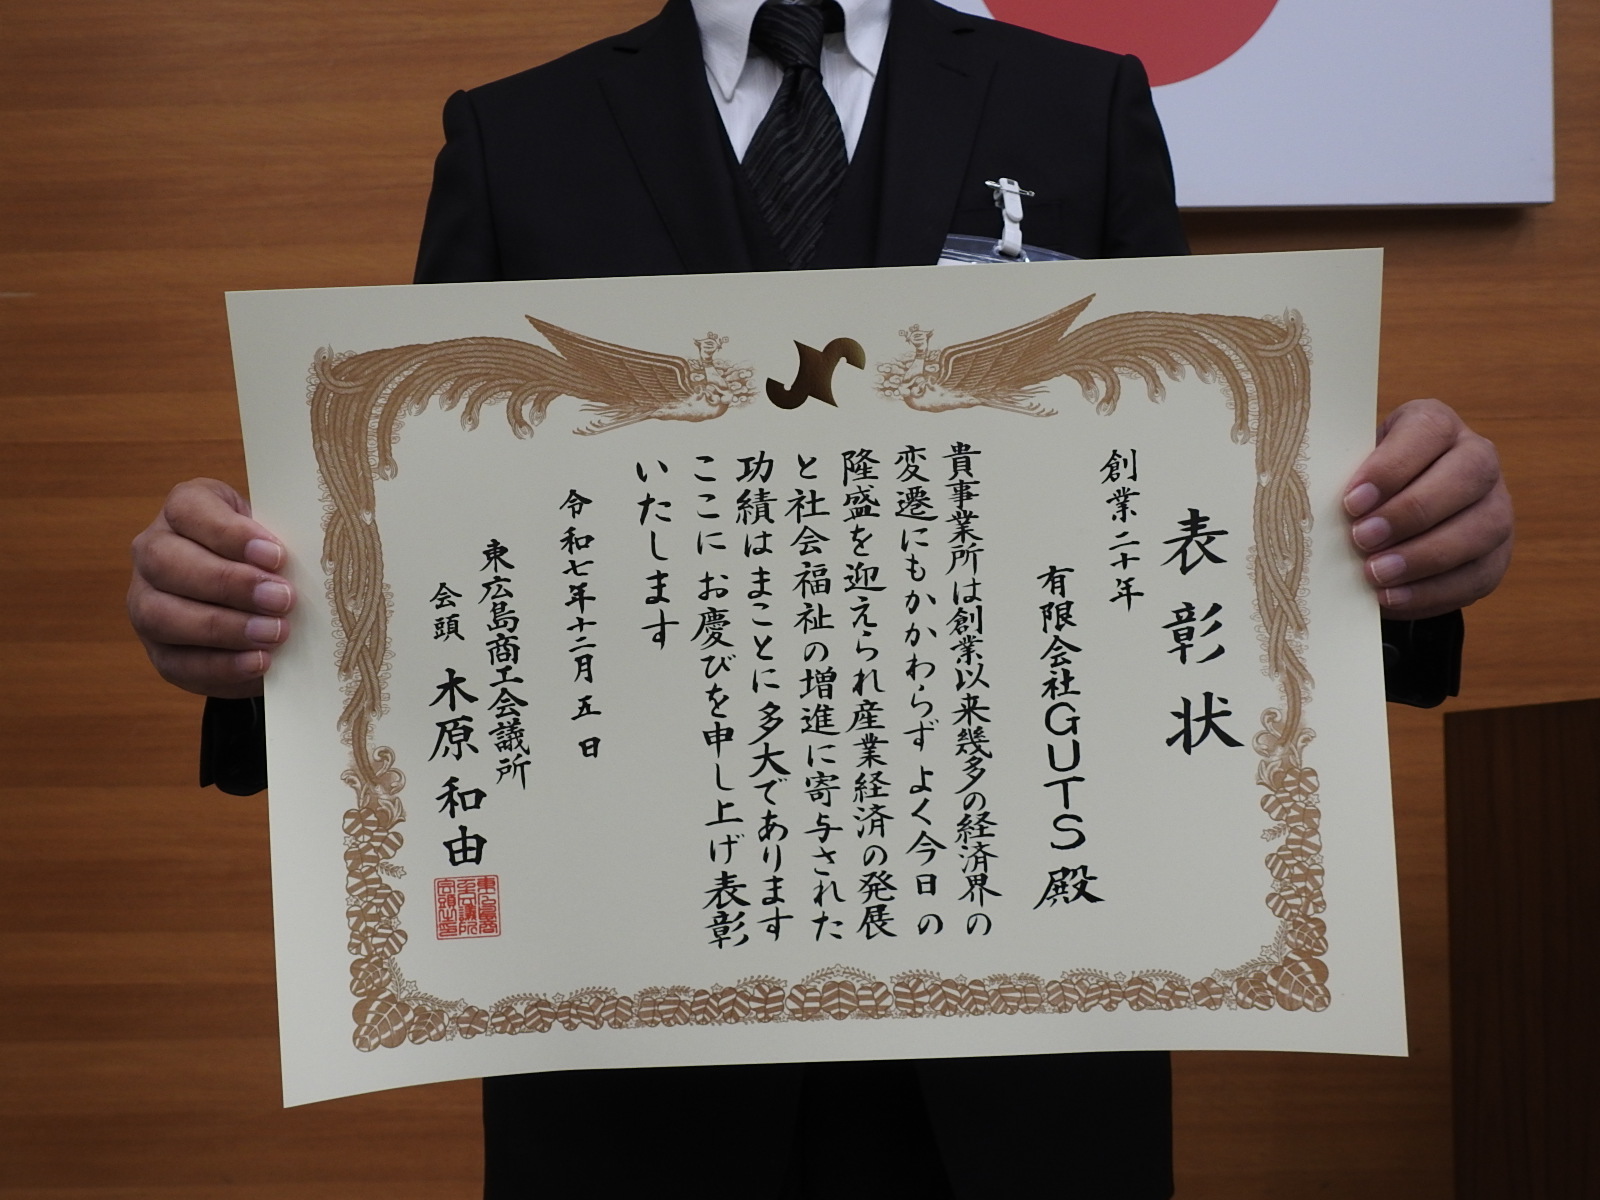 表彰状
創業二十年
有限会社GUTS殿
貴事業所は創業以来幾多の経済界の
変遷にもかかわらずよく今日の
隆盛を迎えられ産業経済の発展
と社会福祉の増進に寄与された
功績はまことに多大であります
ここにお慶びを申し上げ表彰
いたします
令和七年十二月五日
東広島商工会議所
会頭 木原和由